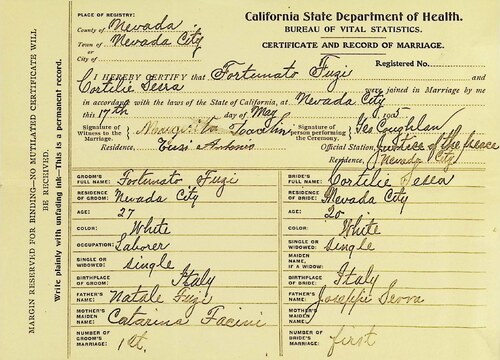 PLACE OF REGISTRY:
County of Nevada
Town of Nevada City
or
City of
California State Department of Health.
BUREAU OF VITAL STATISTICS.
CERTIFICATE AND RECORD OF MARRIAGE.
Registered No.
I HEREBY CERTIFY that Fortunato Fugi and
Cortilie Serra were joined in Marriage by me
in accordance with the laws of the State of California, at Nevada City
this 17th day of May 1905
Signature of Witness to the Marriage,
Signature of person performing the Ceremony, Geo Coughlan
Residence,
Official Station, Justice of the Peace
Residence, Nevada City
GROOM'S FULL NAME: Fortunato Fugi
BRIDE'S FULL NAME: Cortilie Serra
RESIDENCE OF GROOM: Nevada City
RESIDENCE OF BRIDE: Nevada City
AGE: 27
AGE: 20
COLOR: White
COLOR: White
OCCUPATION: Laborer
SINGLE OR WIDOWED: single
SINGLE OR WIDOWED: single
MAIDEN NAME, IF A WIDOW:
BIRTHPLACE OF GROOM: Italy
BIRTHPLACE OF BRIDE: Italy
FATHER'S NAME: Natale Fugi
FATHER'S NAME: Joseppi Serra
MOTHER'S MAIDEN NAME: Catarina Facini
MOTHER'S MAIDEN NAME:
NUMBER OF GROOM'S MARRIAGE: 1st.
NUMBER OF BRIDE'S MARRIAGE: first
MARGIN RESERVED FOR BINDING—NO MUTILATED CERTIFICATE WILL
BE RECEIVED.
Write plainly with unfading ink—This is a permanent record.